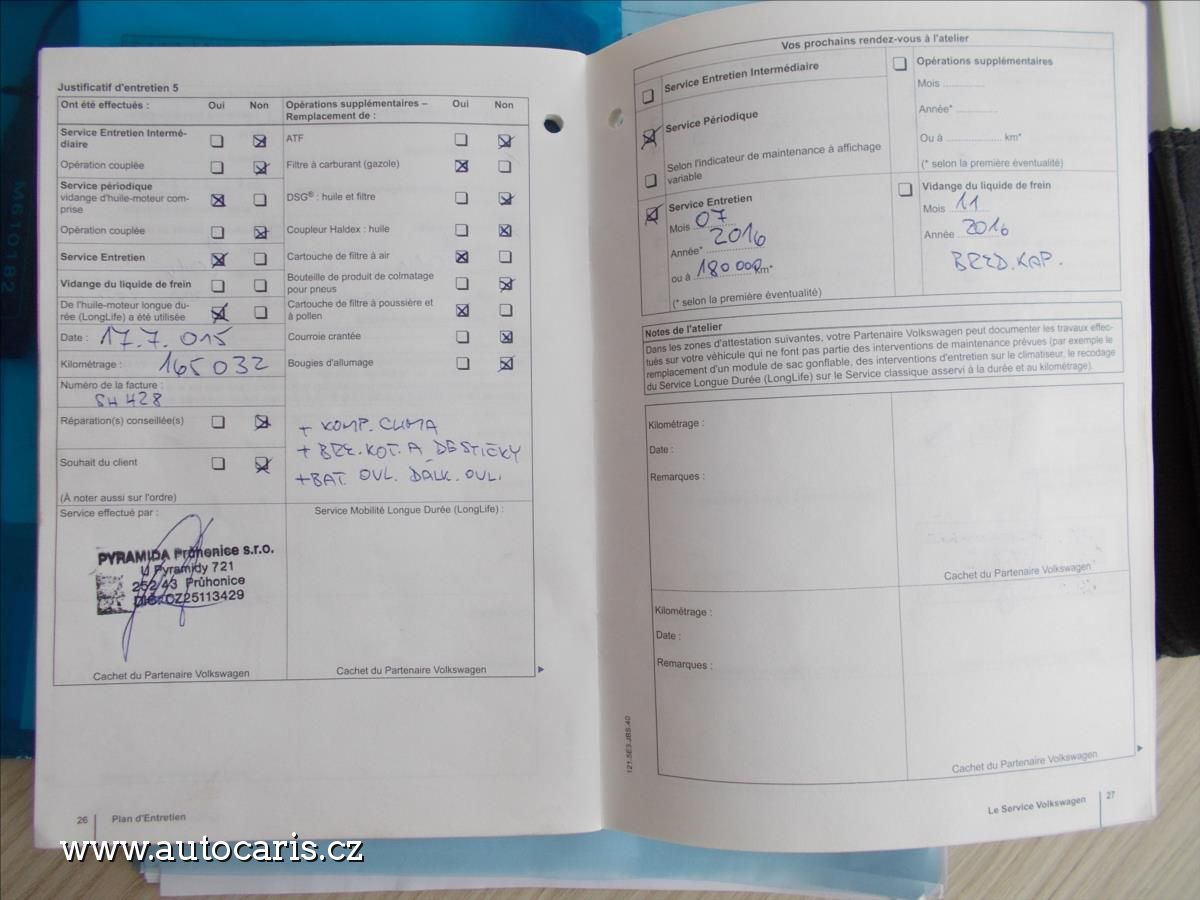 Justificatif d'entretien 5
Ont été effectués : Oui Non
Service Entretien Intermé-
diaire
Opération couplée
Service périodique
vidange d'huile-moteur com-
prise
Opération couplée
Service Entretien
Vidange du liquide de frein
De l'huile-moteur longue du-
rée (LongLife) a été utilisée
Date : 17.7.015
Kilométrage : 165 032
Numéro de la facture :
SH 428
Réparation(s) conseillée(s)
Souhait du client
(À noter aussi sur l'ordre)
Service effectué par :
PYRAMIDA Průhonice s.r.o.
U Pyramidy 721
252 43 Průhonice
DIČ: CZ25113429
Cachet du Partenaire Volkswagen
Opérations supplémentaires –
Remplacement de : Oui Non
ATF
Filtre à carburant (gazole)
DSG® : huile et filtre
Coupleur Haldex : huile
Cartouche de filtre à air
Bouteille de produit de colmatage
pour pneus
Cartouche de filtre à poussière et
à pollen
Courroie crantée
Bougies d'allumage
+ KOMP. CLIMA
+ BRZ. KOT. A DESTIČKY
+ BAT. OVL. DALK. OVL.
Service Mobilité Longue Durée (LongLife) :
Cachet du Partenaire Volkswagen
26 Plan d'Entretien
Vos prochains rendez-vous à l'atelier
Service Entretien Intermédiaire
Service Périodique
Selon l'indicateur de maintenance à affichage
variable
Service Entretien
Mois 07
Année* 2016
ou à 180 000 km*
(* selon la première éventualité)
Opérations supplémentaires
Mois ..............
Année* ..............
Ou à .................. km*
(* selon la première éventualité)
Vidange du liquide de frein
Mois 11
Année 2016
BRZD. KAP.
Notes de l'atelier
Dans les zones d'attestation suivantes, votre Partenaire Volkswagen peut documenter les travaux effec-
tués sur votre véhicule qui ne font pas partie des interventions de maintenance prévues (par exemple le
remplacement d'un module de sac gonflable, des interventions d'entretien sur le climatiseur, le recodage
du Service Longue Durée (LongLife) sur le Service classique asservi à la durée et au kilométrage).
Kilométrage :
Date :
Remarques :
Cachet du Partenaire Volkswagen
Kilométrage :
Date :
Remarques :
Cachet du Partenaire Volkswagen
121.5E3.JBS.40
Le Service Volkswagen 27
M610182
www.autocaris.cz